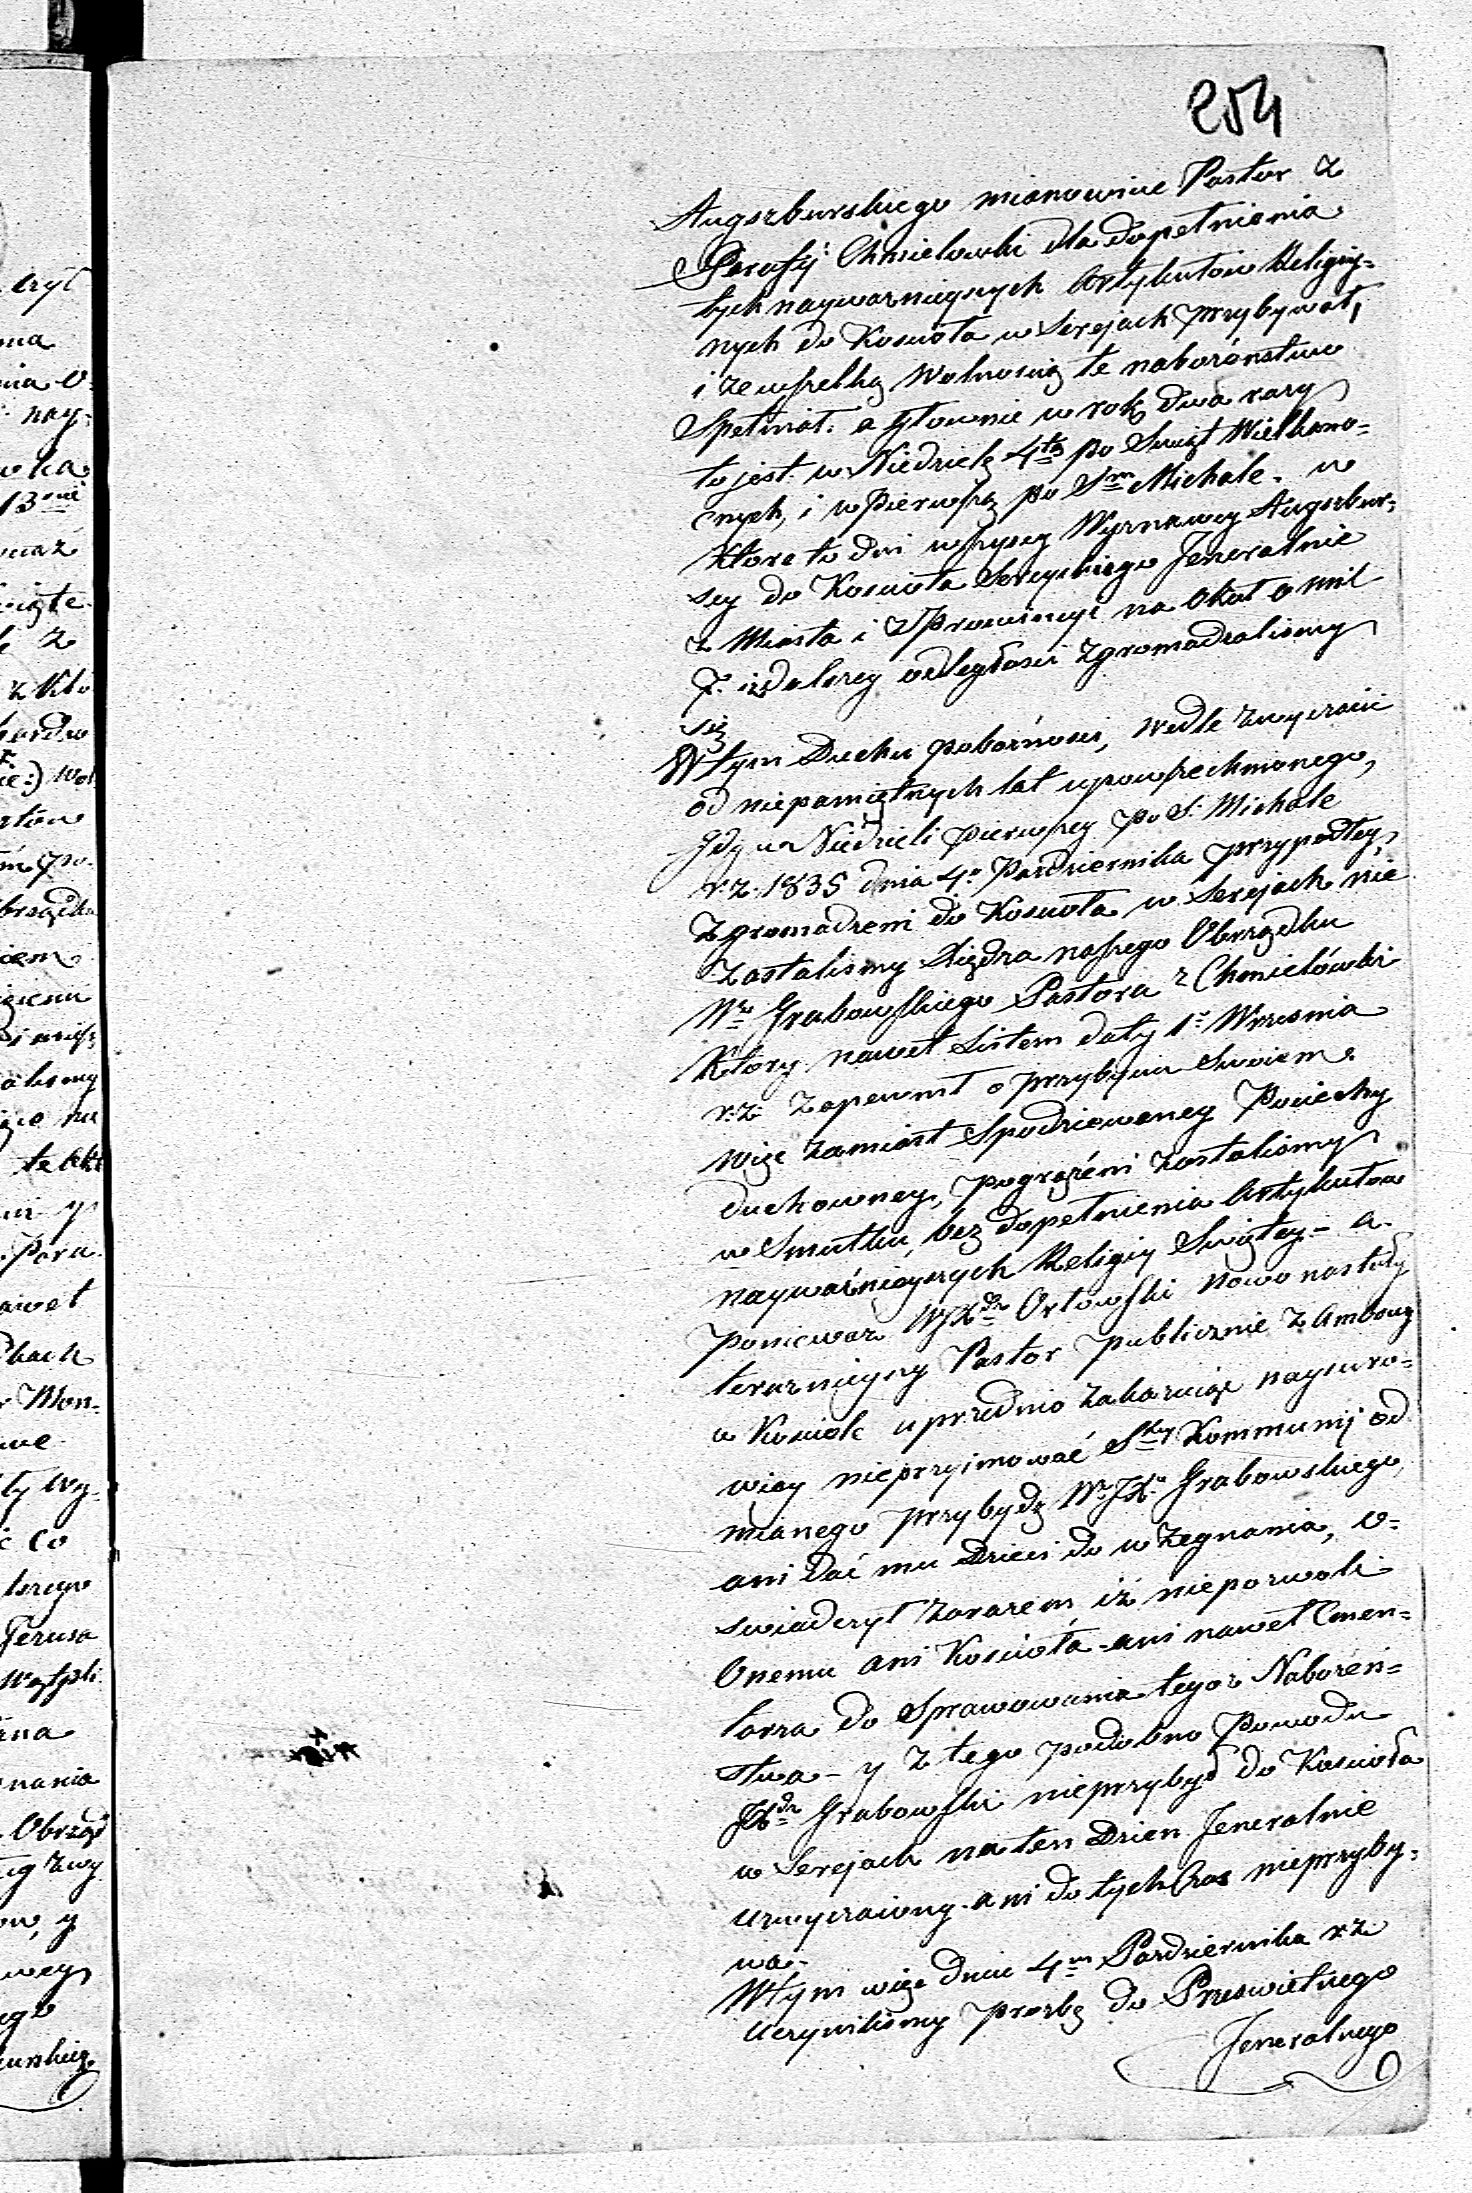 254
Augszburskiego mianowicie Pastor z
Parafij Chmielowki dla dopełnienia
tych naywaznieyszych Artykułow Religiy-
nych do Koscioła w Serejach przybywał,
i ze wszelką Wolnoscią te nabozeństwo
Spełniał. a głownie w rok dwa razy
to jest w Niedzielę 4tą po Swiąt Wielkano-
cnych, i w Pierwszą po Sm Michale. w
ktore to dni wszyscy Wyznawcy Augszbur-
scy do Koscioła Sereyskiego Jeneralnie
z Miasta i z Prowincyi na okoł o mil
7. i z dalszey odległosci zgromadzalismy
się
W tym Duchu pobożnosci, wedle zwyczaiu
od niepamiętnych lat upowszechnionego,
gdy w Niedzieli pierwszey po S. Michale
r. z. 1835 dnia 4o Pazdziernika przypadłey,
zgromadzeni do Koscioła w Serejach nie
zastalismy Xiędza naszego Obrządku
Wo Grabowskiego Pastora z Chmielówki
Ktory nawet Listem daty 1o Wrzesnia
r. z. zapewnił o przybyciu Swoiem.
więc zamiast Spodziewaney Pociechy
duchowney, pogrążeni zostalismy
w Smutku, bez dopełnienia Artykułow
nayważnieyszych Religiy Swiętey - a
poniewaz WJXdz Orłowski nowo nastały
teraznieyszy Pastor publicznie z Ambony
w Kosciele uprzednio zakazuiąc naysuro-
wiey nieprzyimować Stey Kommunij od
mianego przybydz Wo JXa Grabowskiego,
ani dać mu Dzieci do wżegnania, o-
swiadczył zarazem iż niepozwoli
Onemu ani Koscioła ani nawet Cmen-
tarza do Sprawowania tegoz Nabożeń-
stwa - y z tego podobno Powodu
JXdz Grabowski nieprzybył do Koscioła
w Serejach na ten Dzien Jeneralnie
uzwyczaiony ani do tych Czas nieprzyby-
wa.
W tym więc dniu 4m Pazdziernika r. z
uczynilismy prozbę do Przeswietnego
Jeneralnego